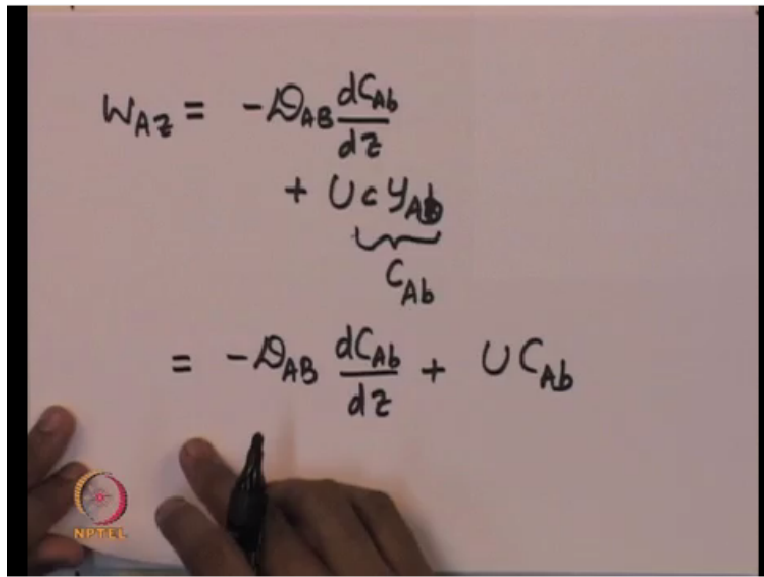 W_{Az} = -D_{AB} \frac{dC_{Ab}}{dz}
+ U c y_{Ab}
C_{Ab}
= -D_{AB} \frac{dC_{Ab}}{dz} + U C_{Ab}
NPTEL